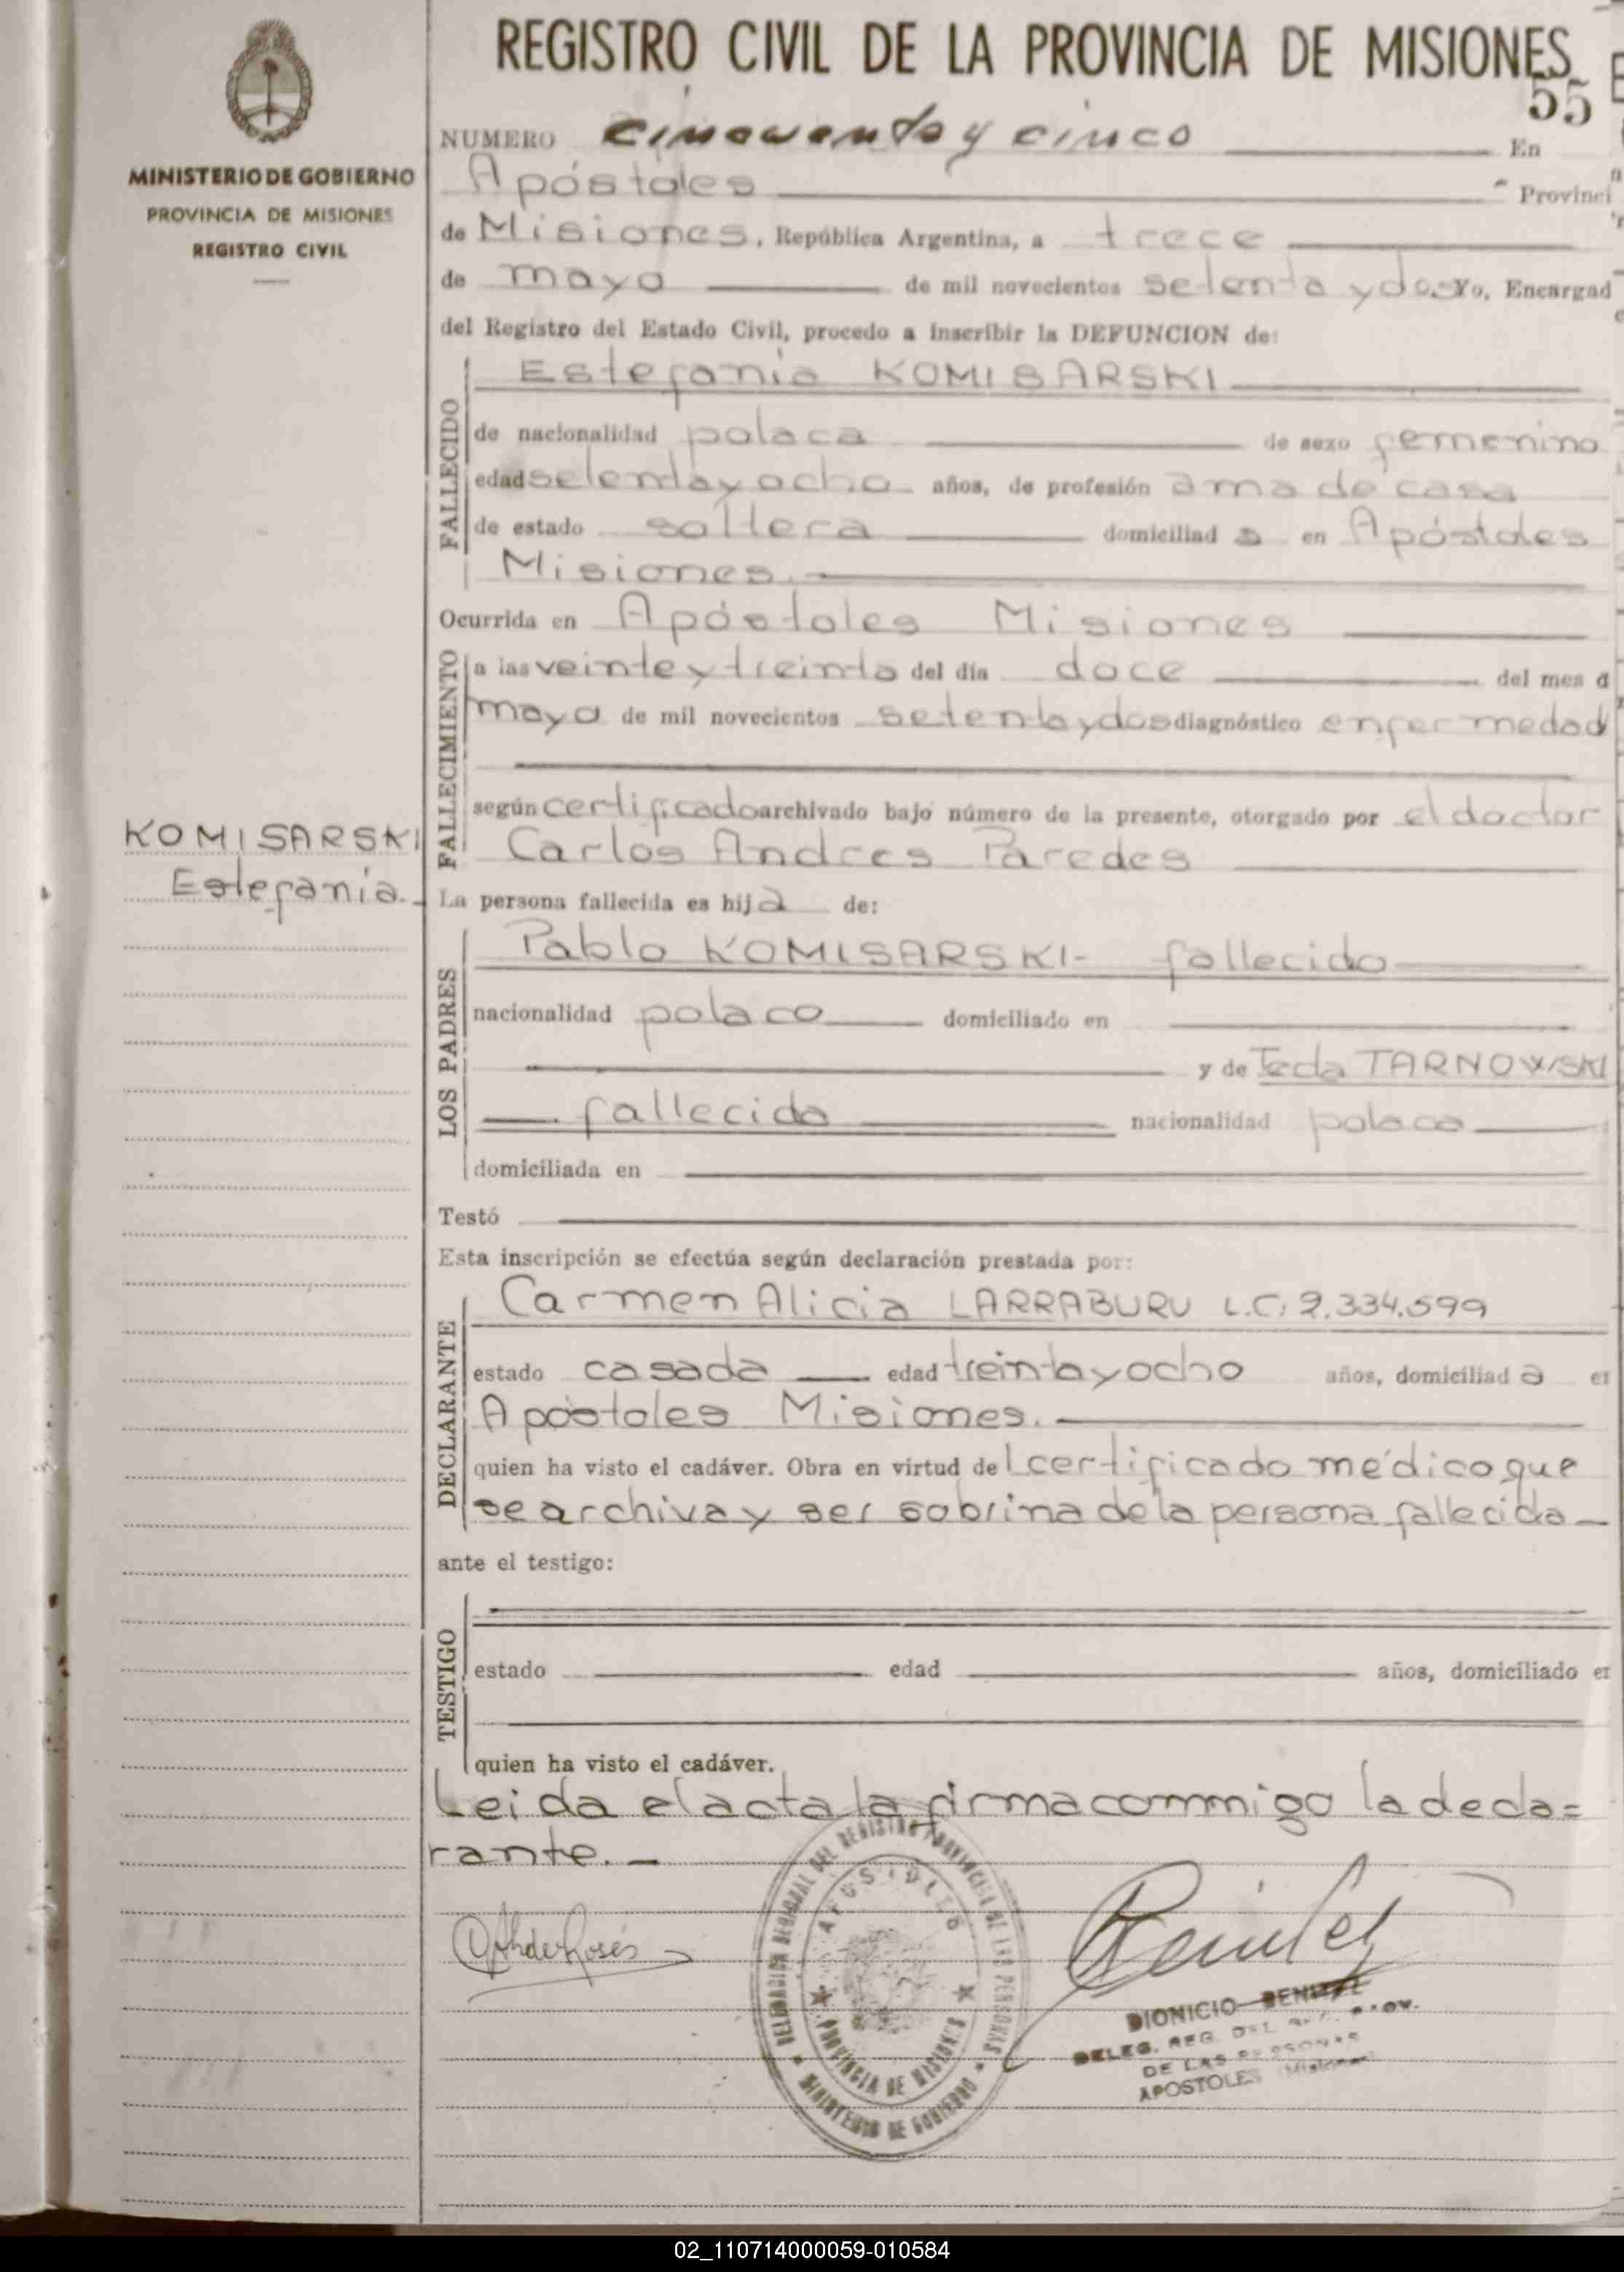 REGISTRO CIVIL DE LA PROVINCIA DE MISIONES
55
MINISTERIO DE GOBIERNO
PROVINCIA DE MISIONES
REGISTRO CIVIL
NUMERO cincuenta y cinco En
Apóstoles Provinci
de Misiones, República Argentina, a trece
de mayo de mil novecientos setenta y dos Yo, Encargad
del Registro del Estado Civil, procedo a inscribir la DEFUNCION de:
FALLECIDO
Estefania KOMISARSKI
de nacionalidad polaca de sexo femenino
edad setenta y ocho años, de profesión ama de casa
de estado soltera domiciliad a en Apóstoles
Misiones
Ocurrida en Apóstoles Misiones
FALLECIMIENTO
a las veinte y treinta del día doce del mes d
mayo de mil novecientos setenta y dos diagnóstico enfermedad
según certificado archivado bajo número de la presente, otorgado por el doctor
Carlos Andres Paredes
KOMISARSKI
Estefania.
La persona fallecida es hija de:
LOS PADRES
Pablo KOMISARSKI- fallecido
nacionalidad polaco domiciliado en
y de Tecla TARNOWSKI
fallecida nacionalidad polaca
domiciliada en
Testó
Esta inscripción se efectúa según declaración prestada por:
DECLARANTE
Carmen Alicia LARRABURU L.C: 2.334.599
estado casada edad treinta y ocho años, domiciliad a
Apóstoles Misiones.
quien ha visto el cadáver. Obra en virtud del certificado médico que
se archiva y ser sobrina de la persona fallecida
ante el testigo:
TESTIGO
estado edad años, domiciliado
quien ha visto el cadáver.
Leida el acta la firma conmigo la decla=
rante.
DELEGACION REGIONAL DEL REGISTRO PROVINCIAL DE LAS PERSONAS
APOSTOLES
PROVINCIA DE MISIONES
MINISTERIO DE GOBIERNO
DIONICIO BENITEZ
DELEG. REG. DEL REG. PROV.
DE LAS PERSONAS
APOSTOLES (Misiones)
02_110714000059-010584